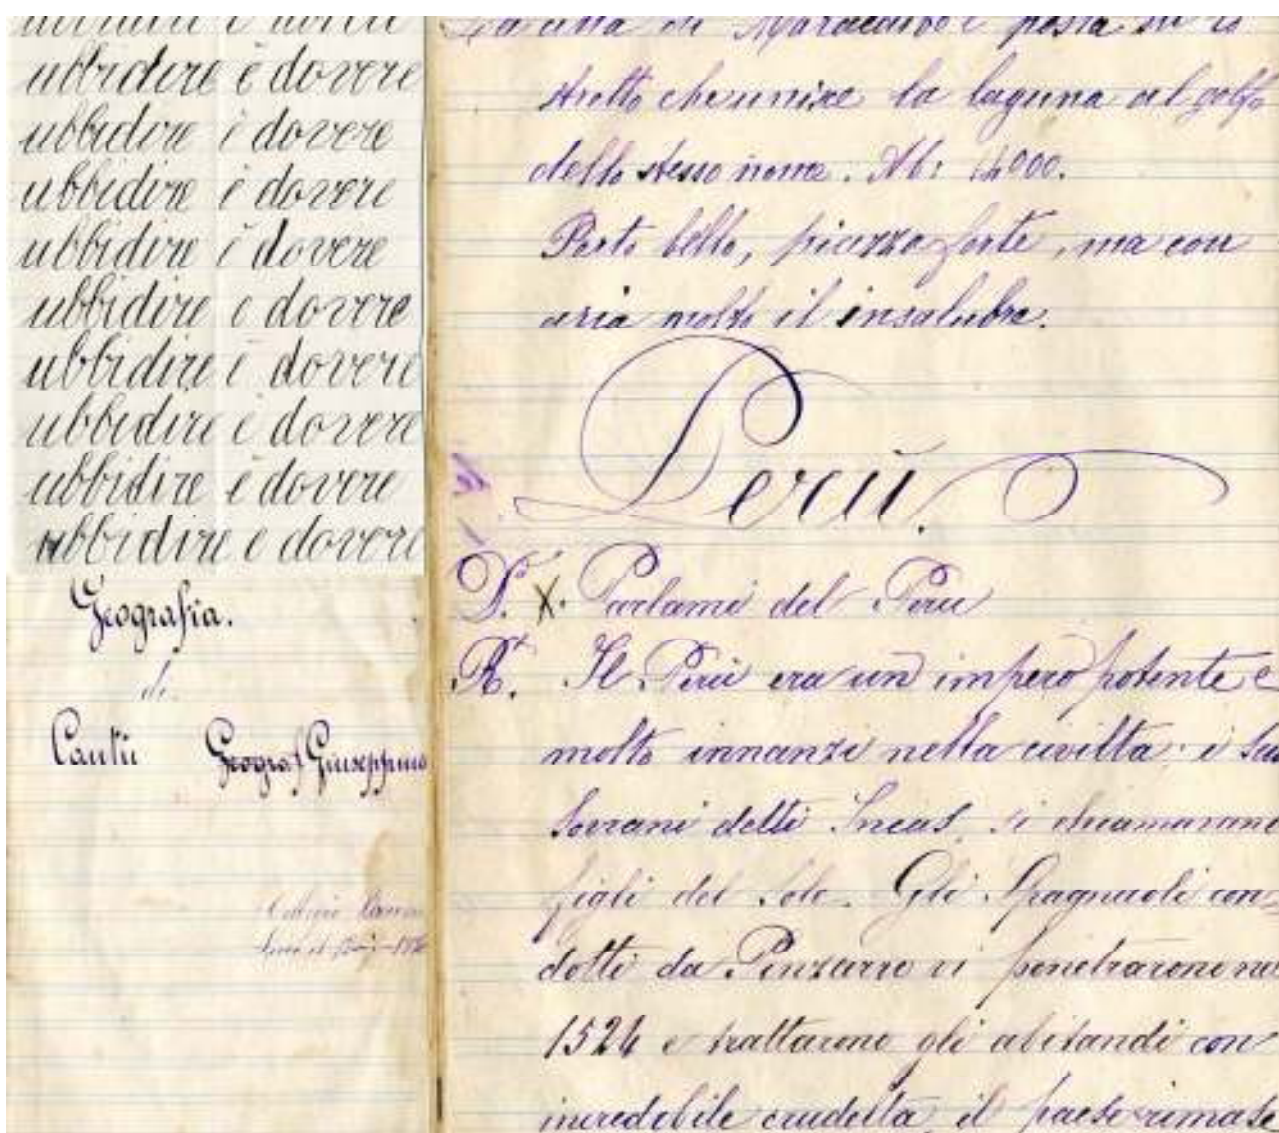 ubbidire è dovere
ubbidire è dovere
ubbidire è dovere
ubbidire è dovere
ubbidire è dovere
ubbidire e dovere
ubbidire è dovere
ubbidire è dovere
ubbidire è dovere
ubbidire è dovere
Geografia.
di
Cantù Geograf Giuseppino
La città di Maracaibo è posta su lo
stretto che unisce la laguna al golfo
dello stesso nome. Ab: 14000.
Porto bello, piazza forte, ma con
aria molto il insalubre.
Perù.
D. X. Parlami del Perù
R. Il Perù era un impero potente e
molto innanzi nella civiltà; i suo
Sovrani detti Incas, si chiamarano
figli del Sole. Gli Spagnuoli con-
dotti da Pinzarro vi penetrarono ne
1524 e trattarono gli abitandi con
incredibile crudeltà, il paese rimase